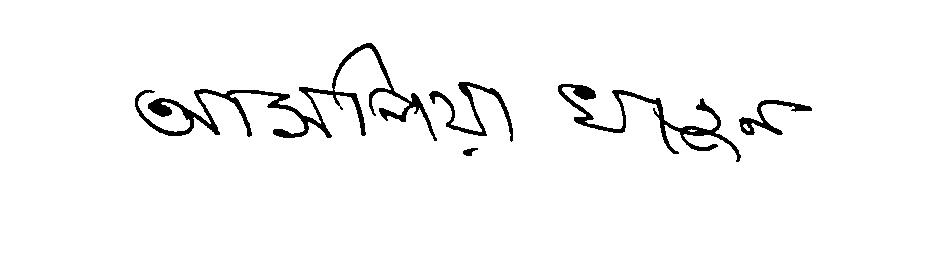 আসলিয়া খাতুন